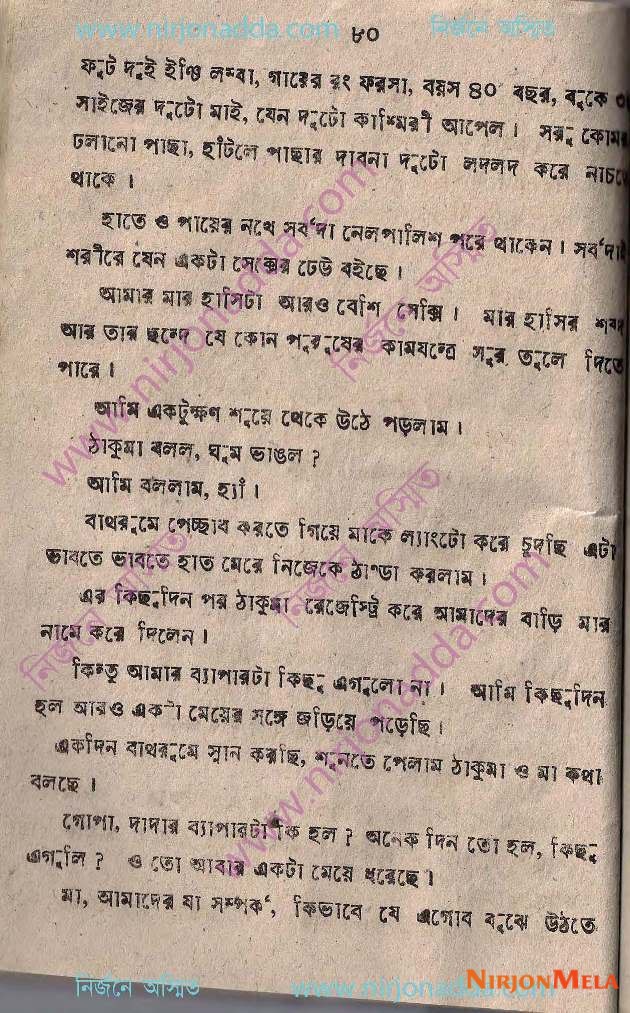 www.nirjonadda.com ৮০ নির্জনে অস্মিত
ফুট দুই ইঞ্চি লম্বা, গায়ের রং ফরসা, বয়স ৪০ বছর, বুকে
সাইজের দুটো মাই, যেন দুটো কাশ্মিরী আপেল। সরু কোমর
ঢলানো পাছা, হাঁটলে পাছার দাবনা দুটো লদলদ করে নাচতে
থাকে।
হাতে ও পায়ের নখে সর্বদা নেলপালিশ পরে থাকেন। সর্বদাই
শরীরে যেন একটা সেক্সের ঢেউ বইছে।
আমার মার হাসিটা আরও বেশি সেক্সি। মার হাসির শব্দ
আর তার ছন্দে যে কোন পুরুষের কামযন্ত্রে সুর তুলে দিতে
পারে।
আমি একটুক্ষণ শুয়ে থেকে উঠে পড়লাম।
ঠাকুমা বলল, ঘুম ভাঙল?
আমি বললাম, হ্যাঁ।
বাথরুমে পেচ্ছাব করতে গিয়ে মাকে ল্যাংটো করে চুদছি এটা
ভাবতে ভাবতে হাত মেরে নিজেকে ঠাণ্ডা করলাম।
এর কিছুদিন পর ঠাকুমা রেজেস্ট্রি করে আমাদের বাড়ি মার
নামে করে দিলেন।
কিন্তু আমার ব্যাপারটা কিছু এগুলো না। আমি কিছুদিন
হল আরও একটা মেয়ের সঙ্গে জড়িয়ে পড়েছি।
একদিন বাথরুমে স্নান করছি, শুনতে পেলাম ঠাকুমা ও মা কথা
বলছে।
গোপা, দাদার ব্যাপারটা কি হল? অনেক দিন তো হল, কিছু
এগুলি? ও তো আবার একটা মেয়ে ধরেছে।
মা, আমাদের যা সম্পর্ক, কিভাবে যে এগোব বুঝে উঠতে
নির্জনে অস্মিত www.nirjonadda.com NIRJONMELA
www.nirjonadda.com নির্জনে অস্মিত
www.nirjonadda.com নির্জনে অস্মিত
নির্জনে অস্মিত